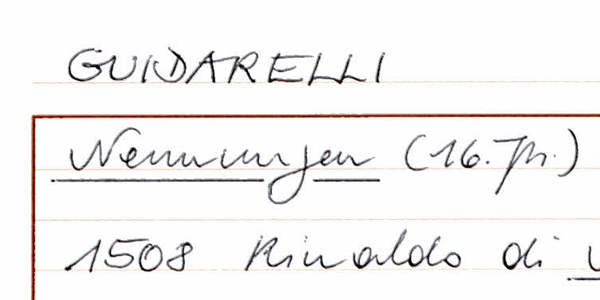 GUIDARELLI
Nennungen (16. Jh.)
1508 Rinaldo di